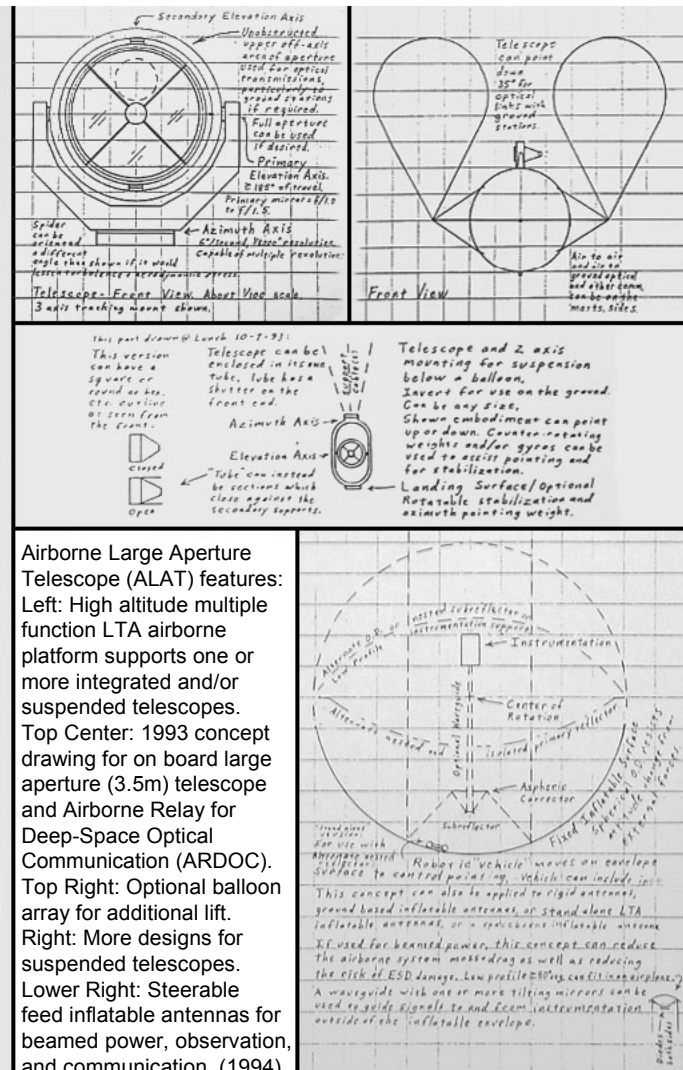 Secondary Elevation Axis
Unobstructed
upper off-axis
area of aperture
used for optical
transmissions,
particularly to
ground stations
if required.
Full aperture
can be used
if desired.
Primary
Elevation Axis.
≥ 185° of travel.
Primary mirror ≈ f/1.0
to f/1.5.
Azimuth Axis
6°/second, resolution
Capable of multiple revolutions.
Spider
can be
oriented
a different
angle than shown if it would
lessen turbulence & aerodynamic stress.
Telescope - Front View. About 1/100 scale.
3 axis tracking mount shown.
Telescope
can point
down
35° for
optical
links with
ground
stations.
Air to air
and air to
ground optical
and other comm.
can be on the
masts, sides.
Front View
This part drawn @ Lunch 10-7-93:
This version
can have a
square or
round or hex.
etc. outline
as seen from
the front:
Closed
Open
Telescope can be
enclosed in its own
tube. Tube has a
shutter on the
front end.
Support
cable(s)
Azimuth Axis
Elevation Axis
"Tube" can instead
be sections which
close against the
secondary supports.
Telescope and 2 axis
mounting for suspension
below a balloon.
Invert for use on the ground.
Can be any size.
Shown embodiment can point
up or down. Counter-rotating
weights and/or gyros can be
used to assist pointing and
for stabilization.
Landing Surface/Optional
Rotatable stabilization and
azimuth pointing weight.
Airborne Large Aperture
Telescope (ALAT) features:
Left: High altitude multiple
function LTA airborne
platform supports one or
more integrated and/or
suspended telescopes.
Top Center: 1993 concept
drawing for on board large
aperture (3.5m) telescope
and Airborne Relay for
Deep-Space Optical
Communication (ARDOC).
Top Right: Optional balloon
array for additional lift.
Right: More designs for
suspended telescopes.
Lower Right: Steerable
feed inflatable antennas for
beamed power, observation,
and communication. (1994)
Alternate O.D. or nested subreflector or
Low Profile instrumentation support
Instrumentation
Center of
Rotation
Optional Waveguide
Alternate nested and isolated primary reflector
Aspheric
Corrector
Subreflector
Fixed Inflatable Surface
Spherical O.D. resists
attitude change from
external forces
Stand alone
version:
For use with
Alternate nested
reflector:
Robotic "vehicle" moves on envelope
surface to control pointing. Vehicle can include
This concept can also be applied to rigid antennas,
ground based inflatable antennas, or stand alone LTA
inflatable antennas, or a spaceborne inflatable antenna
If used for beamed power, this concept can reduce
the airborne system mass + drag as well as reducing
the risk of ESD damage. Low profile can fit in an airplane.
A waveguide with one or more tilting mirrors can be
used to guide signals to and from instrumentation
outside of the inflatable envelope.
Diodes
both sides